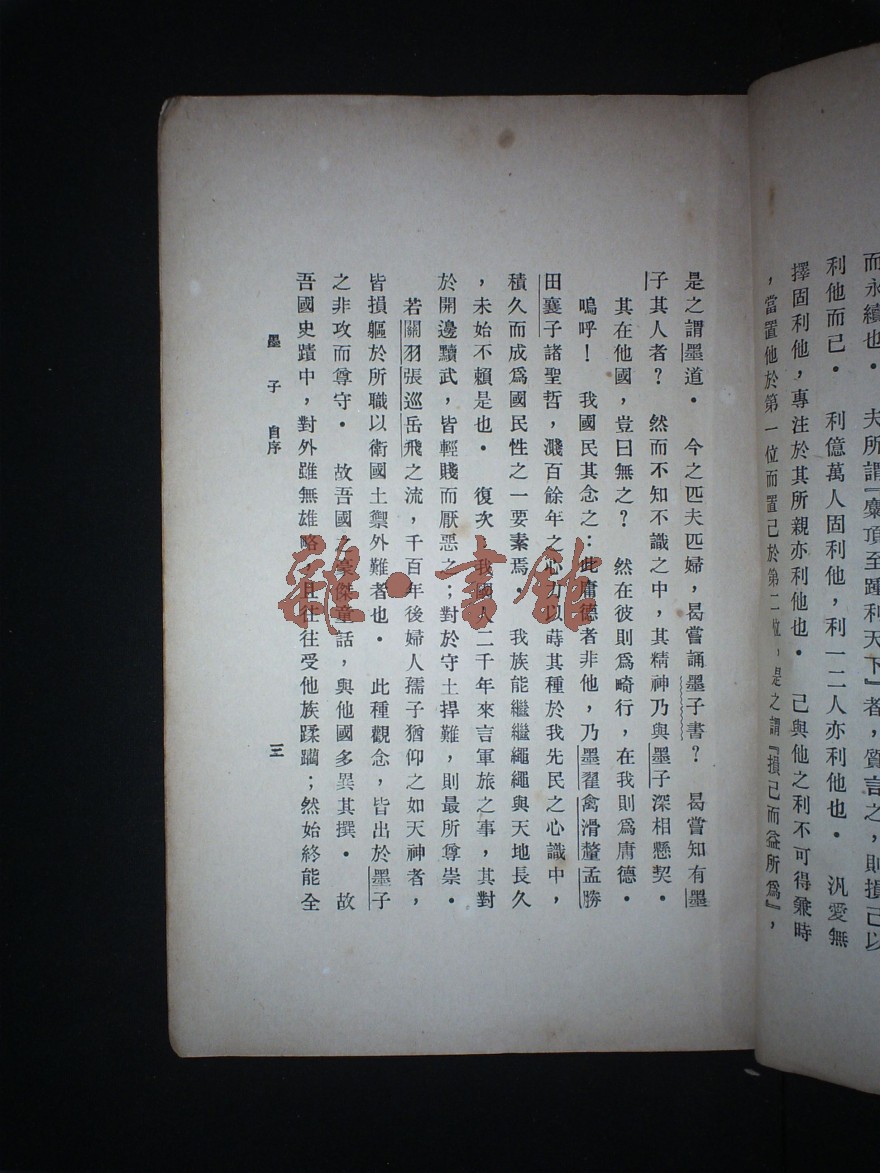 而永續也．　夫所謂『糜頂至踵利天下』者，質言之，則損己以
利他而已．　利億萬人固利他，利一二人亦利他也．　汎愛無
擇固利他，專注於其所親亦利他也．　己與他之利不可得兼時
，當置他於第一位而置己於第二位，是之謂『損己而益所爲』，
是之謂墨道．　今之匹夫匹婦，曷嘗誦墨子書？　曷嘗知有墨
子其人者？　然而不知不識之中，其精神乃與墨子深相懸契．
其在他國，豈曰無之？　然在彼則爲畸行，在我則爲庸德．
嗚呼！　我國民其念之：此庸德者非他，乃墨翟禽滑釐孟勝
田襄子諸聖哲，濺百餘年之心力以蒔其種於我先民之心識中，
積久而成爲國民性之一要素焉．　我族能繼繼繩繩與天地長久
，未始不賴是也．　復次，我國人二千年來言軍旅之事，其對
於開邊黷武，皆輕賤而厭惡之；對於守土捍難，則最所尊崇．
若關羽張巡岳飛之流，千百年後婦人孺子猶仰之如天神者，
皆損軀於所職以衛國土禦外難者也．　此種觀念，皆出於墨子
之非攻而尊守．　故吾國之豪傑童話，與他國多異其撰．　故
吾國史蹟中，對外雖無雄略，且往往受他族蹂躪；然始終能全
墨子　自序　三
雜·書館